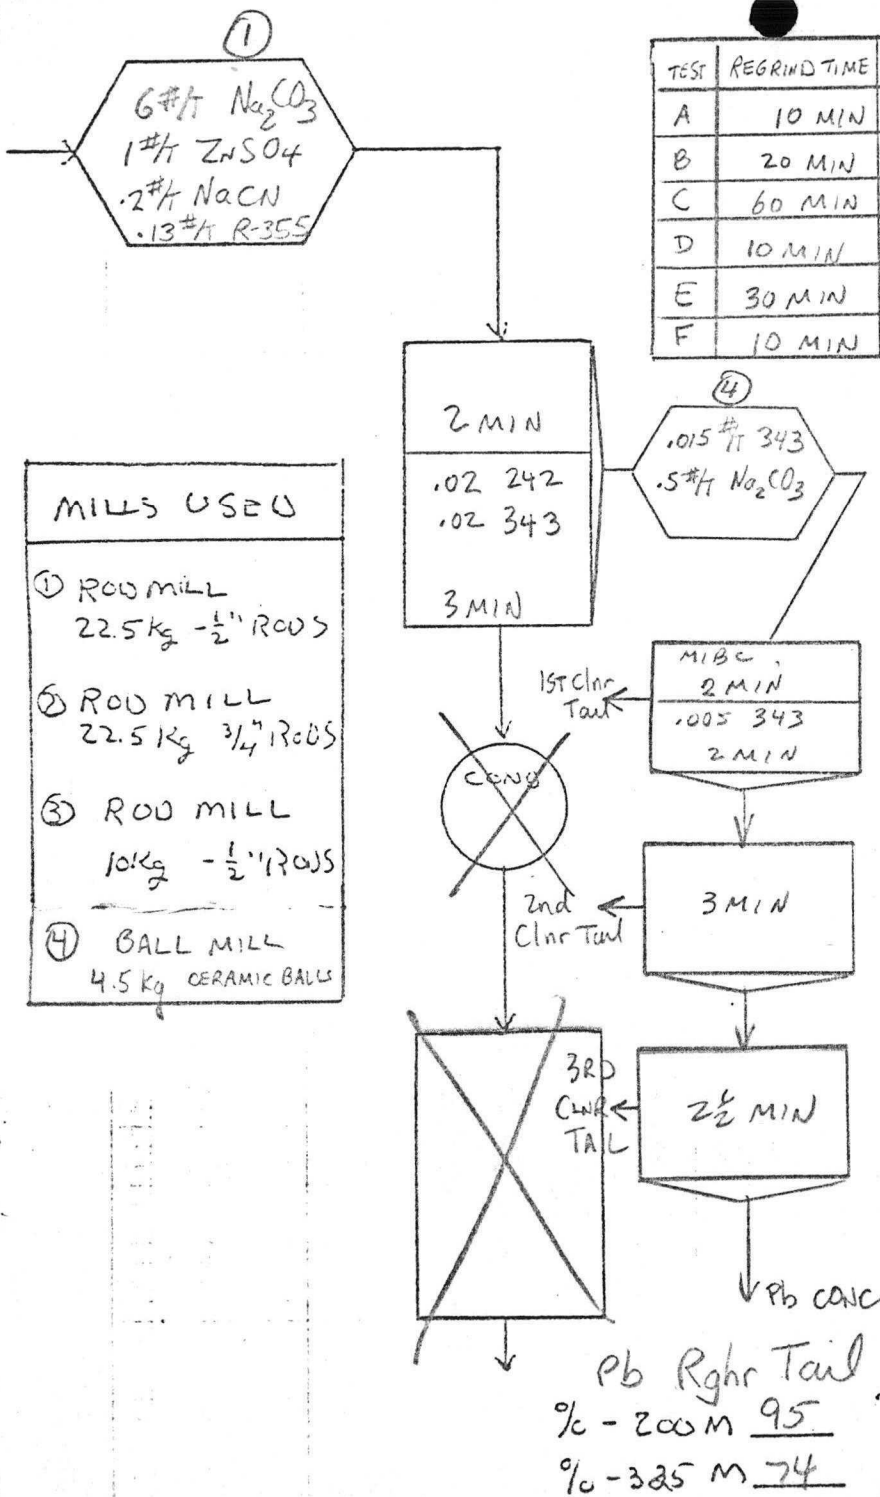 ①
6 #/T Na₂CO₃
1 #/T ZnSO4
.2 #/T NaCN
.13 #/T R-355
TEST REGRIND TIME
A 10 MIN
B 20 MIN
C 60 MIN
D 10 MIN
E 30 MIN
F 10 MIN
2 MIN
.02 242
.02 343
3 MIN
④
.015 #/T 343
.5 #/T Na₂CO₃
MILLS USED
① ROD MILL
22.5 kg -1/2" RODS
② ROD MILL
22.5 kg 3/4" RODS
③ ROD MILL
10 kg -1/2" RODS
④ BALL MILL
4.5 kg CERAMIC BALLS
MIBC
2 MIN
.005 343
2 MIN
1ST Clnr
Tail
COND
3 MIN
2nd
Clnr Tail
2 1/2 MIN
3RD
CLNR
TAIL
Pb CONC
Pb Rghr Tail
% - 200 M 95
% - 325 M 74